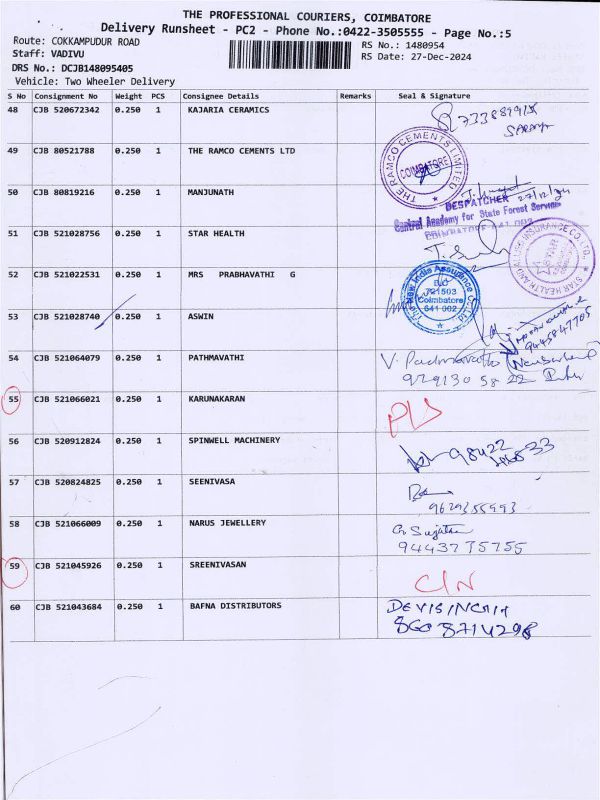 THE PROFESSIONAL COURIERS, COIMBATORE
Delivery Runsheet - PC2 - Phone No.:0422-3505555 - Page No.:5
Route: COKKAMPUDUR ROAD
RS No.: 1480954
Staff: VADIVU
RS Date: 27-Dec-2024
DRS No.: DCJB148095405
Vehicle: Two Wheeler Delivery
S No Consignment No Weight PCS Consignee Details Remarks Seal & Signature
48 CJB 520672342 0.250 1 KAJARIA CERAMICS
49 CJB 80521788 0.250 1 THE RAMCO CEMENTS LTD
THE RAMCO CEMENTS LIMITED
COIMBATORE
50 CJB 80819216 0.250 1 MANJUNATH
27/12/24
DESPATCHER
Central Academy for State Forest Service
51 CJB 521028756 0.250 1 STAR HEALTH
52 CJB 521022531 0.250 1 MRS PRABHAVATHI G
The New India Assurance Co. Ltd
B.O
721503
Coimbatore
641 002
53 CJB 521028740 0.250 1 ASWIN
9445847705
54 CJB 521064079 0.250 1 PATHMAVATHI
V. Padmavathi
55 CJB 521066021 0.250 1 KARUNAKARAN
PLS
56 CJB 520912824 0.250 1 SPINWELL MACHINERY
98422
57 CJB 520824825 0.250 1 SEENIVASA
9629355993
58 CJB 521066009 0.250 1 NARUS JEWELLERY
G. Sujatha
9443775755
59 CJB 521045926 0.250 1 SREENIVASAN
C/N
60 CJB 521043684 0.250 1 BAFNA DISTRIBUTORS
8608714298